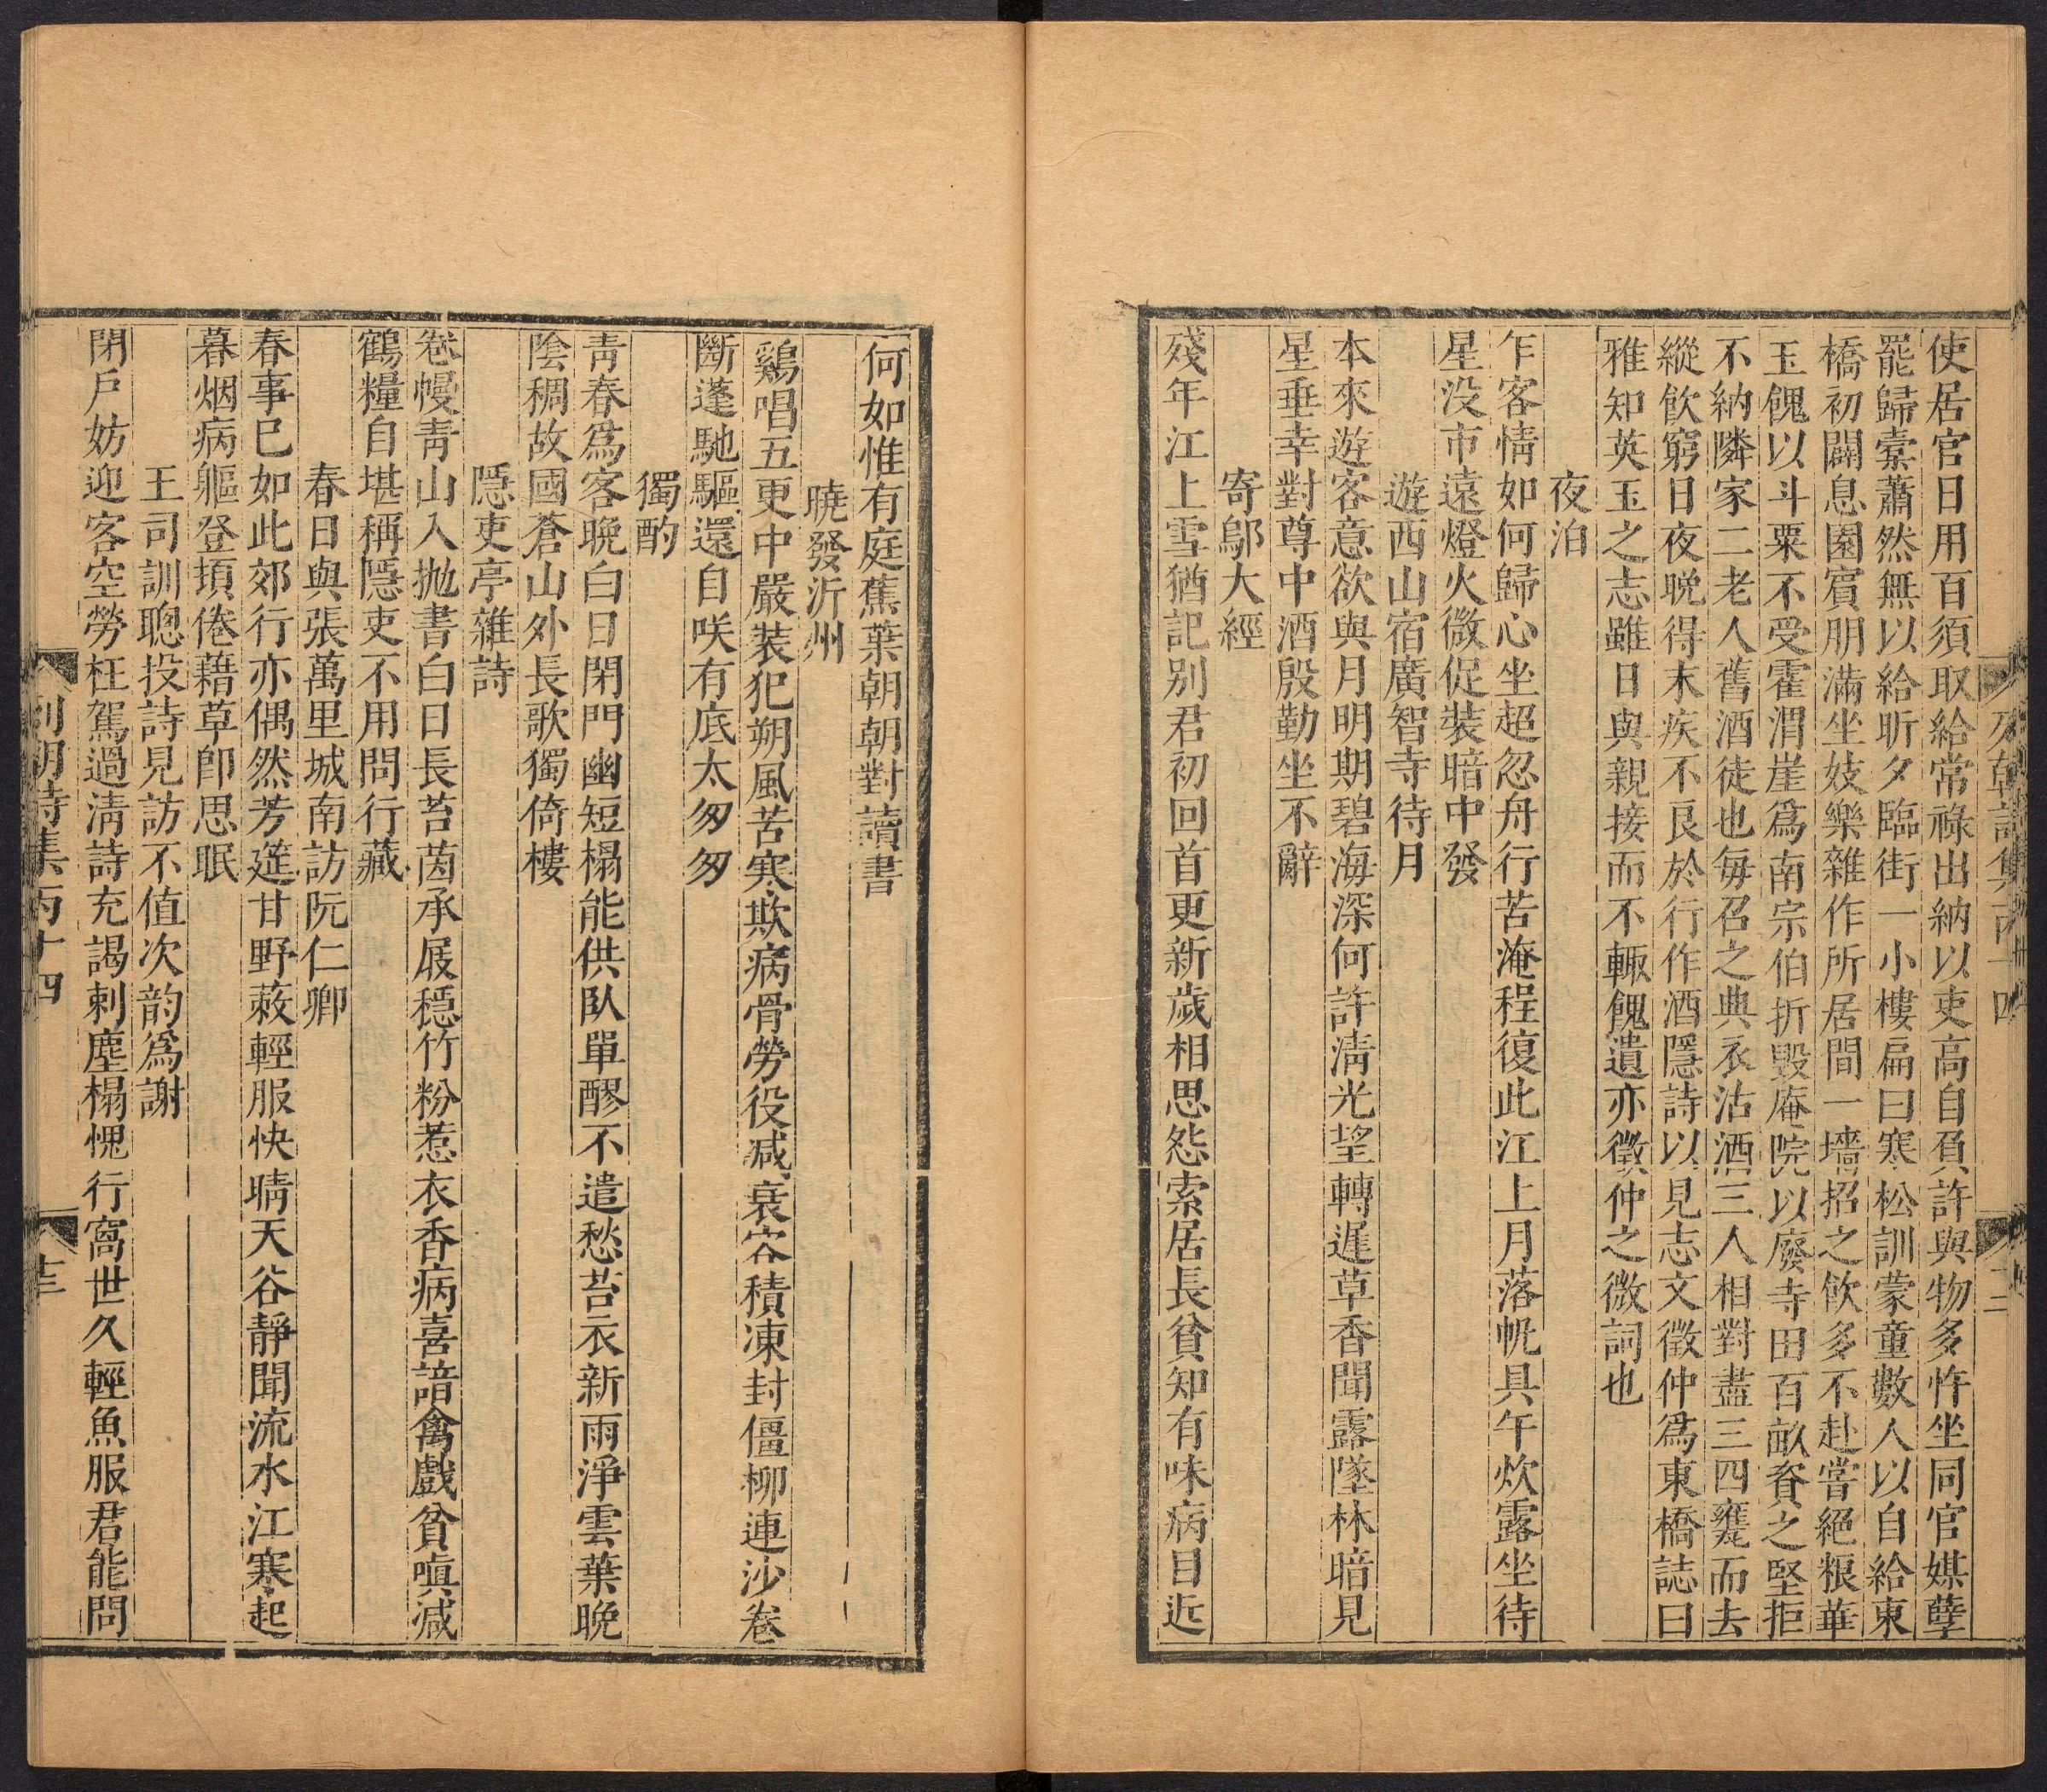 使居官日用百須取給常祿出納以吏高自負許與物多忤坐同官媒孽
罷歸橐蕭然無以給昕夕臨街一小樓扁曰寒松訓蒙童數人以自給東
橋初闢息園賓朋滿坐妓樂雜作所居間一墻招之飲多不赴嘗絕粮華
玉餽以斗粟不受霍渭崖爲南宗伯折毀庵院以廢寺田百畝資之堅拒
不納隣家二老人舊酒徒也每召之典衣沽酒三人相對盡三四甕而去
縱飲窮日夜晚得末疾不良於行作酒隱詩以見志文徵仲爲東橋誌曰
雅知英玉之志雖日與親接而不輒餽遺亦徵仲之微詞也
夜泊
乍客情如何歸心坐超忽舟行苦淹程復此江上月落帆具午炊露坐待
星没市遠燈火微促裝暗中發
遊西山宿廣智寺待月
本來遊客意欲與月明期碧海深何許淸光望轉遲草香聞露墜林暗見
星垂幸對尊中酒殷勤坐不辭
寄鄔大經
殘年江上雪猶記别君初回首更新歲相思怨索居長貧知有味病目近
何如惟有庭蕉葉朝朝對讀書
曉發沂州
鷄唱五更中嚴装犯朔風苦寒欺病骨勞役减衰容積凍封僵柳連沙卷
斷蓬馳驅還自咲有底太匆匆
獨酌
靑春爲客晚白日閉門幽短榻能供臥單醪不遣愁苔衣新雨淨雲葉晚
陰稠故國蒼山外長歌獨倚樓
隱吏亭雜詩
卷幔靑山入抛書白日長苔茵承屐穩竹粉惹衣香病喜諳禽戲貧嗔减
鶴糧自堪稱隱吏不用問行藏
春日與張萬里城南訪阮仁卿
春事巳如此郊行亦偶然芳筵甘野蔌輕服快晴天谷靜聞流水江寒起
暮烟病軀登頓倦藉草卽思眠
王司訓聰投詩見訪不值次韵爲謝
閉戶妨迎客空勞枉駕過淸詩充謁剌塵榻愧行窩世久輕魚服君能問
列朝詩集丙十四
十三